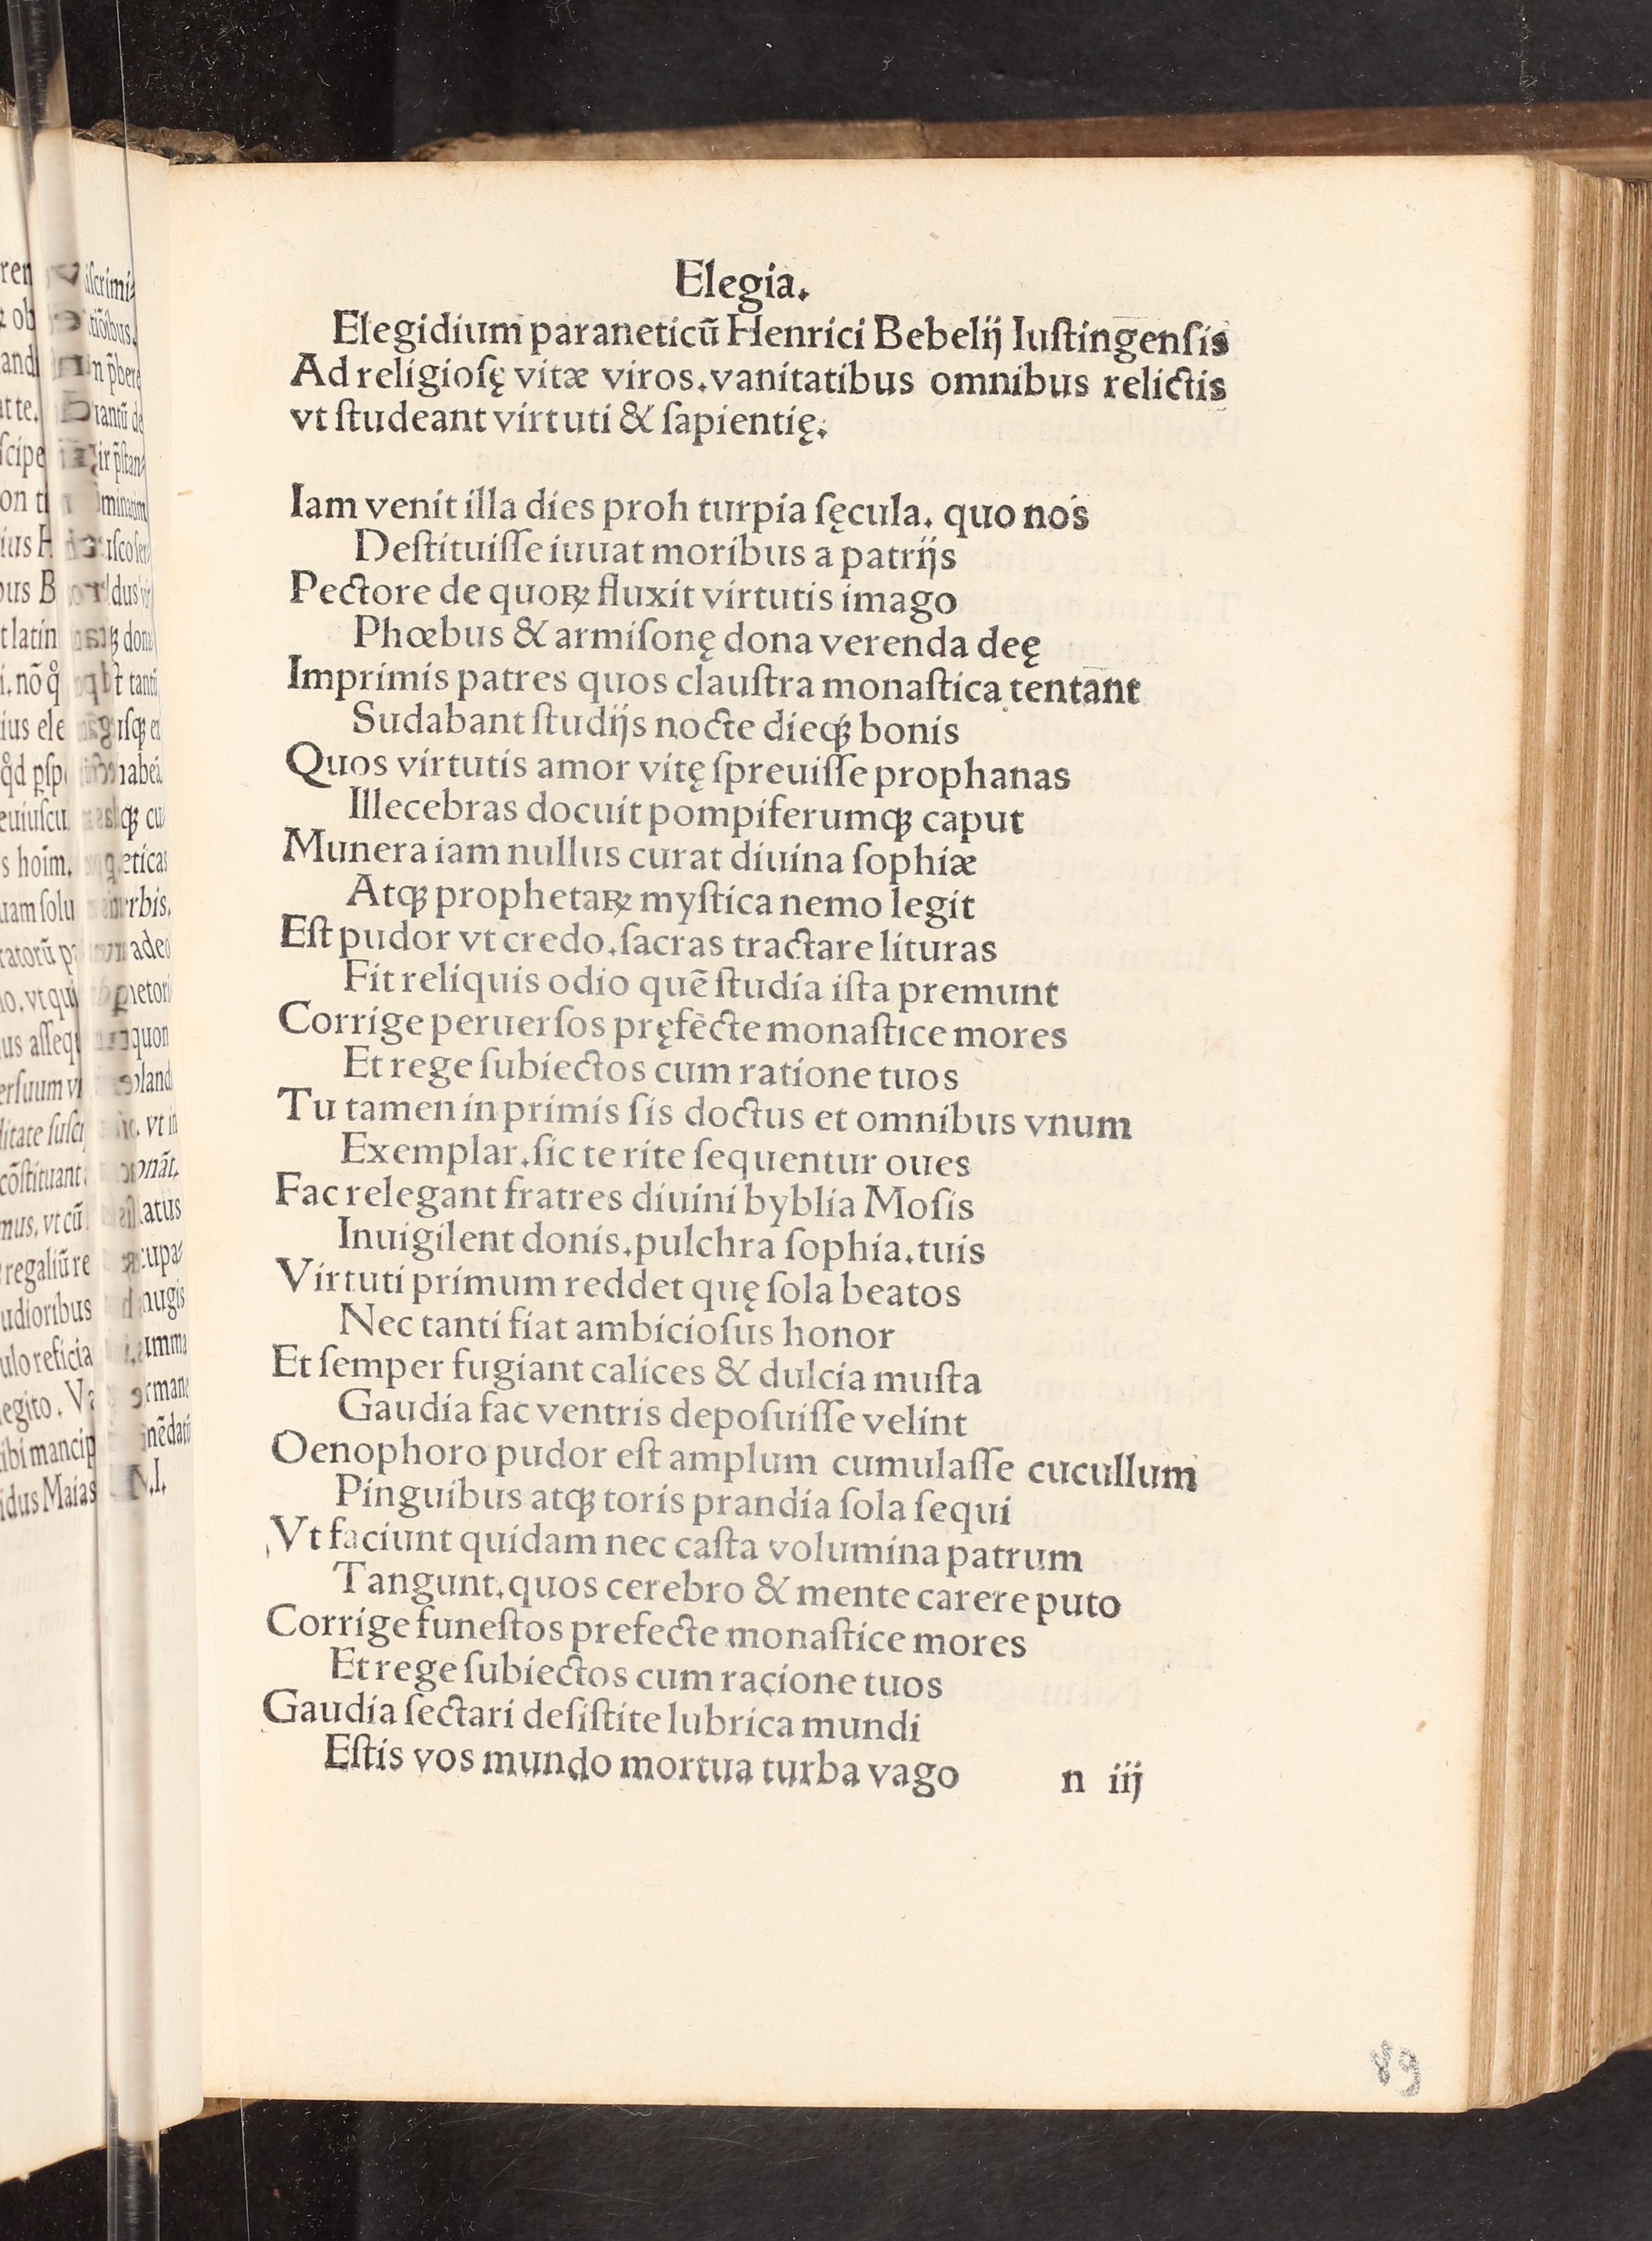 Elegia.
Elegidium paraneticũ Henrici Bebelij Iuſtingenſis
Ad religioſę vitæ viros.vanitatibus omnibus relictis
vt ſtudeant virtuti & ſapientię.
Iam venit illa dies proh turpia ſęcula. quo nos
Deſtituiſſe iuuat moribus a patrijs
Pectore de quoꝝ fluxit virtutis imago
Phœbus & armiſonę dona verenda deę
Imprimis patres quos clauſtra monaſtica tentant
Sudabant ſtudijs nocte dieqꝫ bonis
Quos virtutis amor vitę ſpreuiſſe prophanas
Illecebras docuit pompiferumqꝫ caput
Munera iam nullus curat diuina ſophiæ
Atqꝫ prophetaꝝ myſtica nemo legit
Eſt pudor vt credo.ſacras tractare lituras
Fit reliquis odio quẽ ſtudia iſta premunt
Corrige peruerſos pręfecte monaſtice mores
Et rege ſubiectos cum ratione tuos
Tu tamen in primis ſis doctus et omnibus vnum
Exemplar.ſic te rite ſequentur oues
Fac relegant fratres diuini byblia Moſis
Inuigilent donis.pulchra ſophia.tuis
Virtuti primum reddet quę ſola beatos
Nec tanti fiat ambicioſus honor
Et ſemper fugiant calices & dulcia muſta
Gaudia fac ventris depoſuiſſe velint
Oenophoro pudor eſt amplum cumulaſſe cucullum
Pinguibus atqꝫ toris prandia ſola ſequi
Vt faciunt quidam nec caſta volumina patrum
Tangunt.quos cerebro & mente carere puto
Corrige funeſtos prefecte monaſtice mores
Et rege ſubiectos cum racione tuos
Gaudia ſectari deſiſtite lubrica mundi
Eſtis vos mundo mortua turba vago
n iij
89